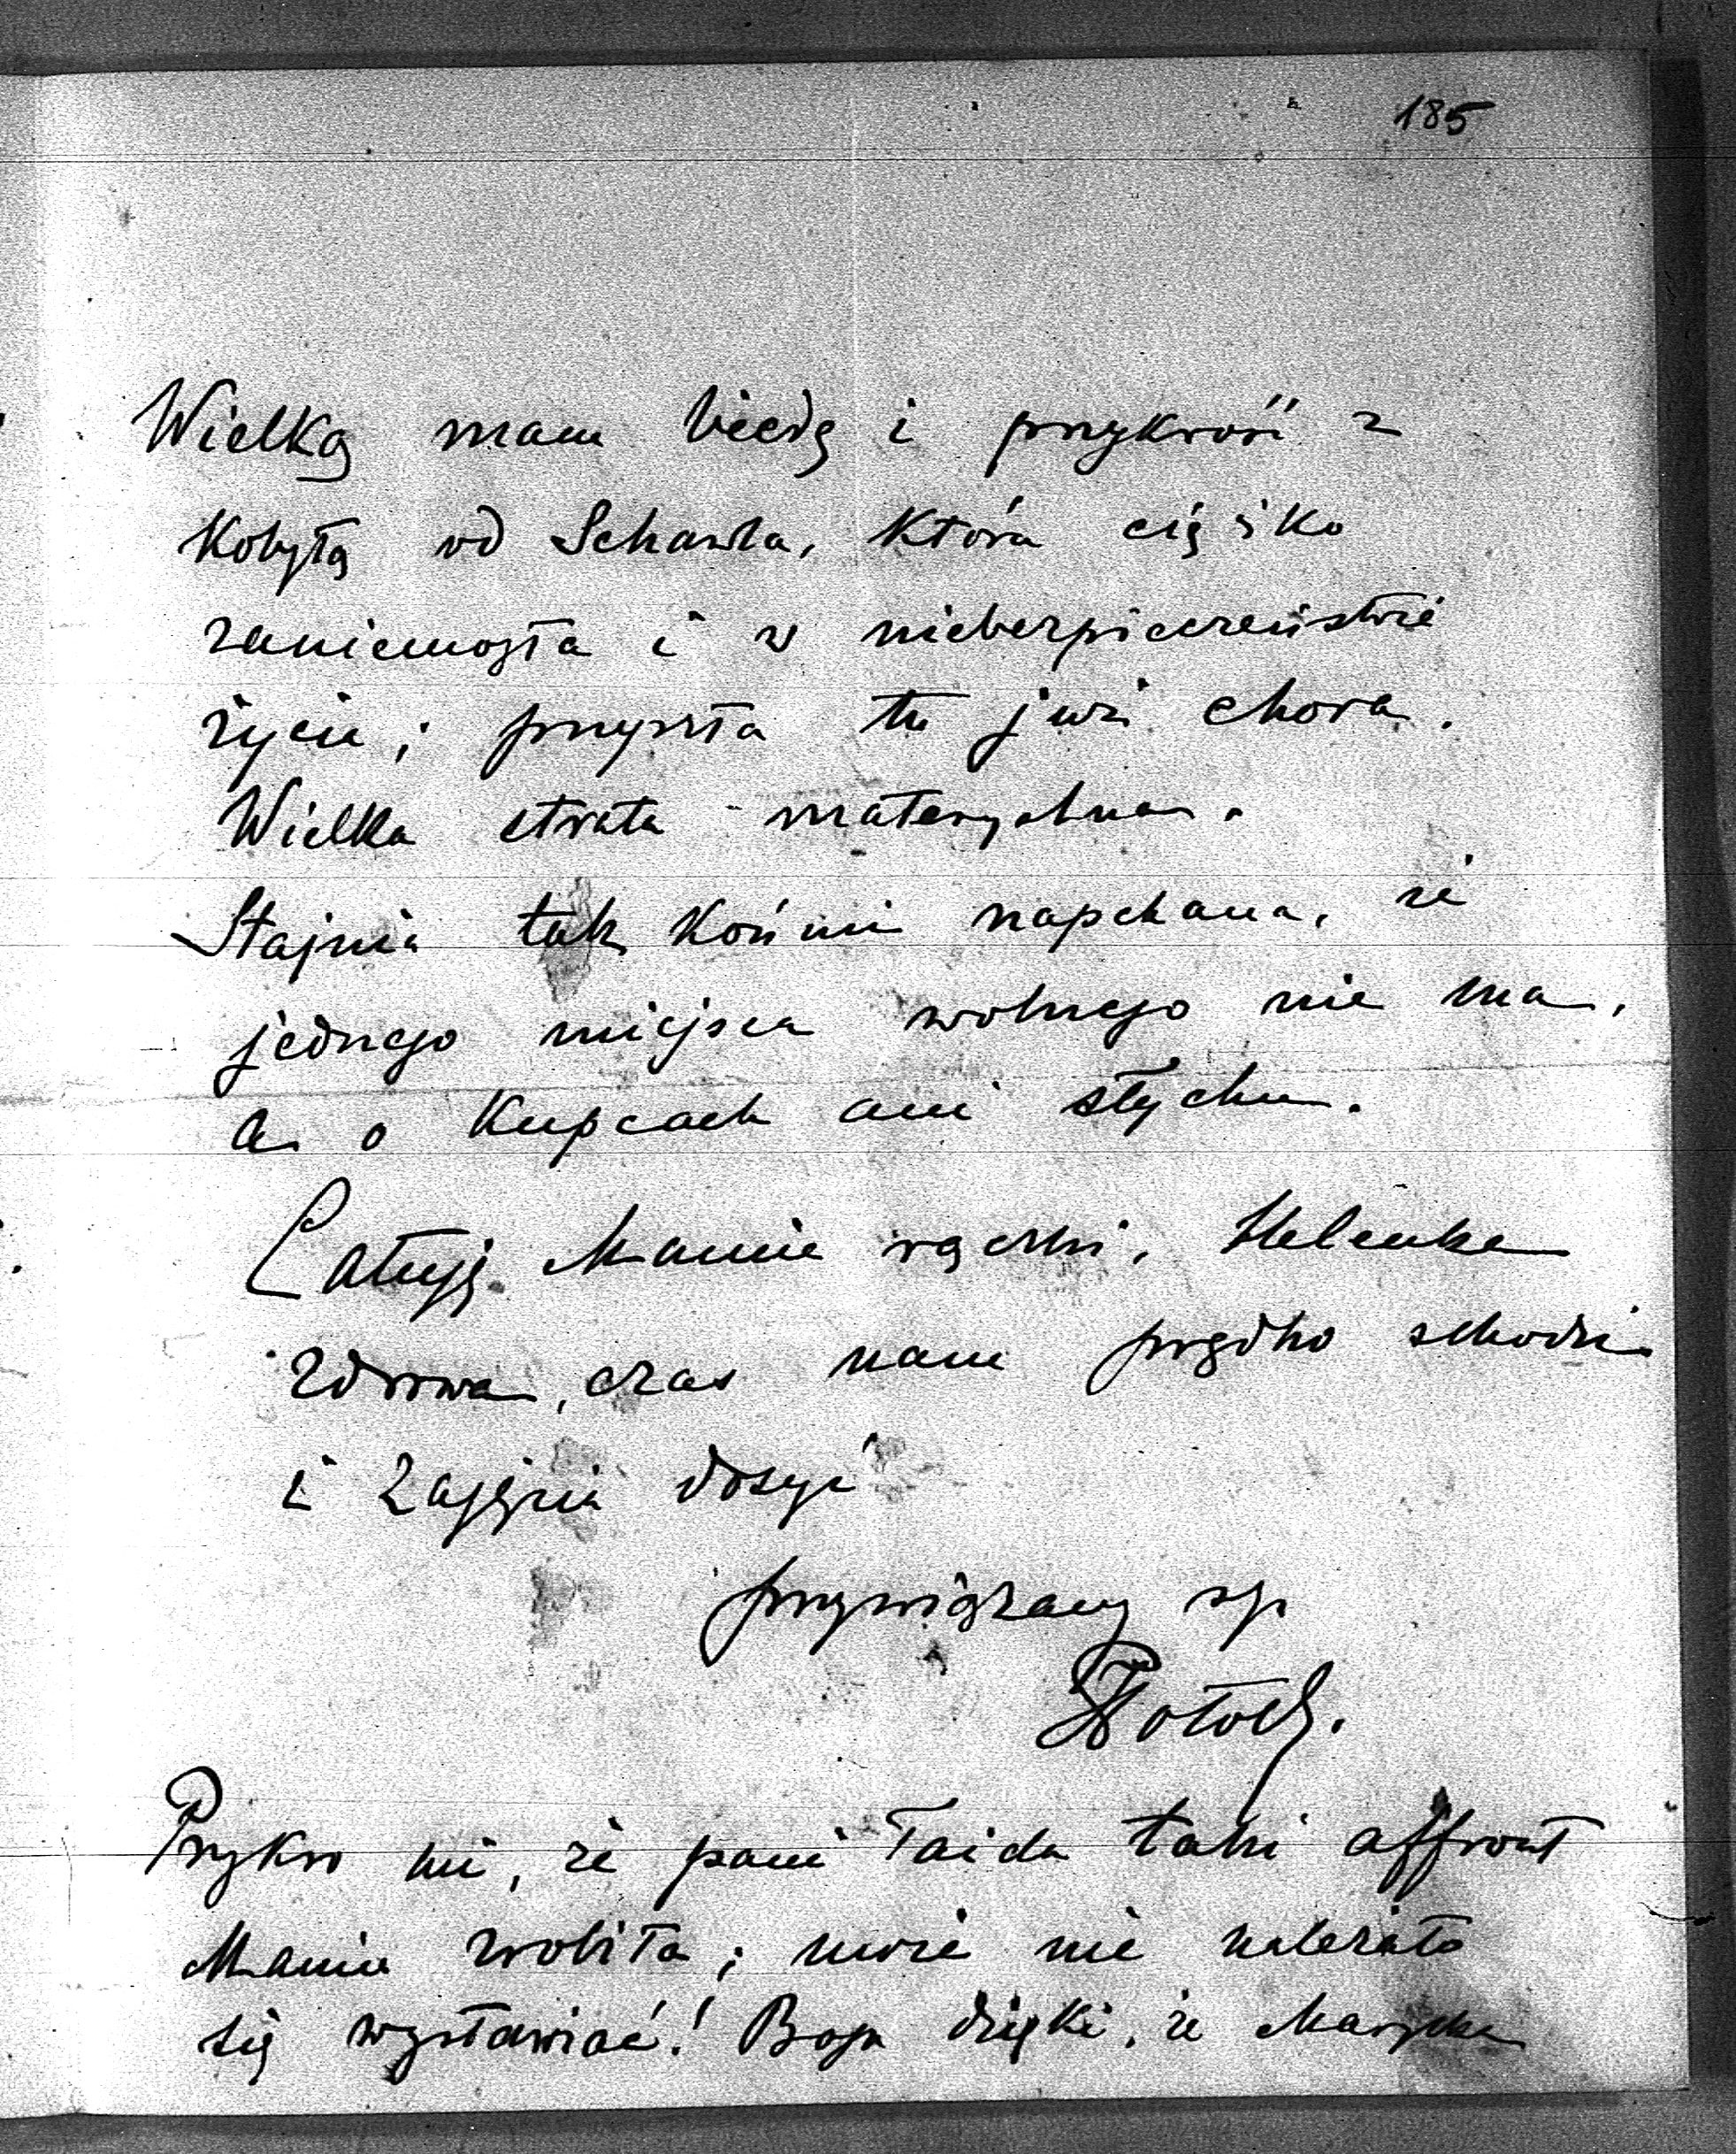 185
Wielką mam biedę i przykrość z
Kobyłą od Schawla, która ciężko
zaniemogła i w niebezpieczeństwie
życia; przyszła tu już chora.
Wielka strata materyalna.
Stajnia tak końmi napchana, że
jednego miejsca wolnego nie ma,
a o kupcach ani słychu.
Całuję Mamie rączki, Helenka
zdrowa, czas nam prędko schodzi
i zajęcia dosyć
przywiązany syn
Potocki.
Przykro mi, że pani Taida taki affront
Mamie zrobiła; może nie należało
się wystawiać! Bogu dzięki, że Marycha